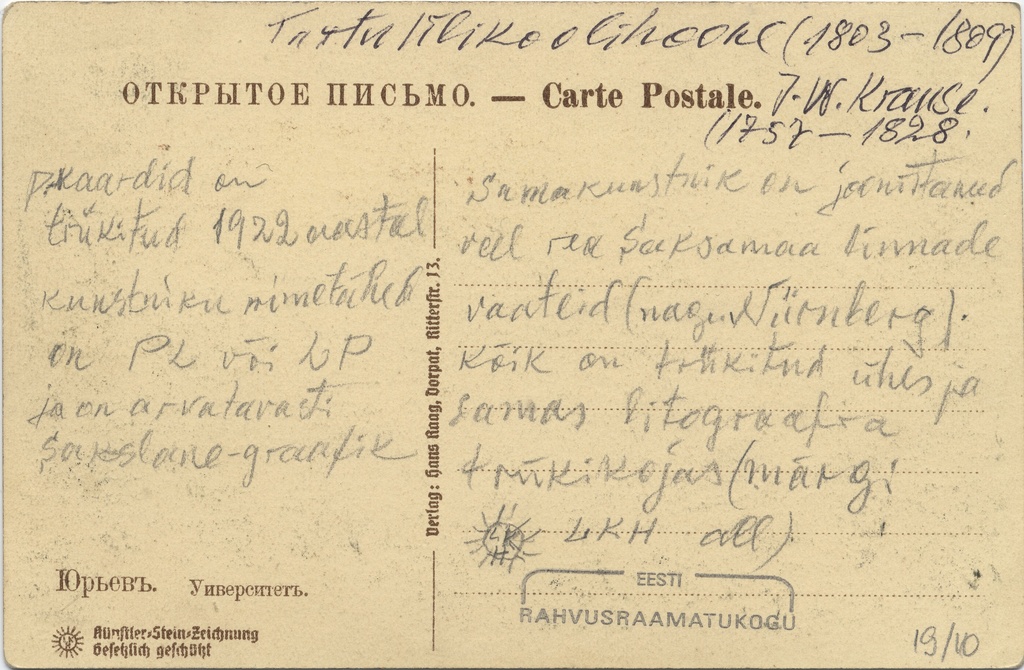 Tartu Ülikooli hoone (1803-1809)
ОТКРЫТОЕ ПИСЬМО. — Carte Postale.
J. W. Krause.
(1757-1828.
p.kaardid on
trükitud 1922 aastal
kunstniku nimetähed
on PL või LP
ja on arvatavasti
Sakslane-graafik
Verlag: Hans Raag, Dorpat, Ritterstr. 13.
Samakunstnik on joonistanud
veel rea Saksamaa linnade
vaateid (nagu Nürnberg).
Kõik on trükitud ühes ja
samas litograafia
trükikojas (märgi
LKH all)
Юрьевъ. Университетъ.
Künstler-Stein-Zeichnung
Gesetzlich geschützt
EESTI
RAHVUSRAAMATUKOGU
19/10